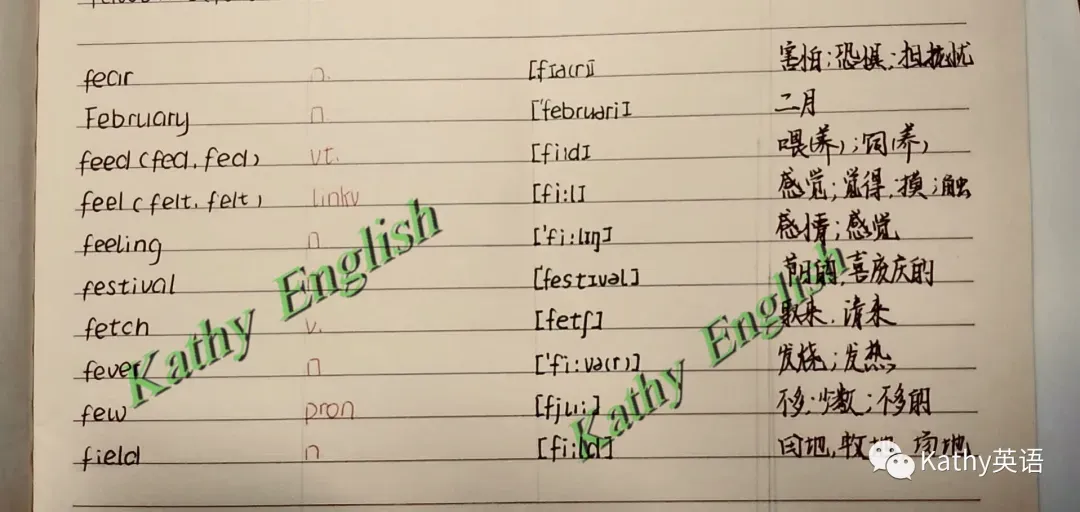 fear n. [fɪə(r)] 害怕;恐惧;担扰忧
February n. ['februəri] 二月
feed (fed, fed) vt. [fi:d] 喂(养);饲(养)
feel (felt, felt) linkv [fi:l] 感觉;觉得,摸;触
feeling n ['fi:lɪŋ] 感情;感觉
festival [festɪvəl] 节日的,喜庆的
fetch v. [fetʃ] 取来,请来
fever n ['fi:və(r)] 发烧;发热
few pron [fju:] 不多;少数;不多的
field n [fi:ld] 田地,牧地,
Kathy English
Kathy English
Kathy英语